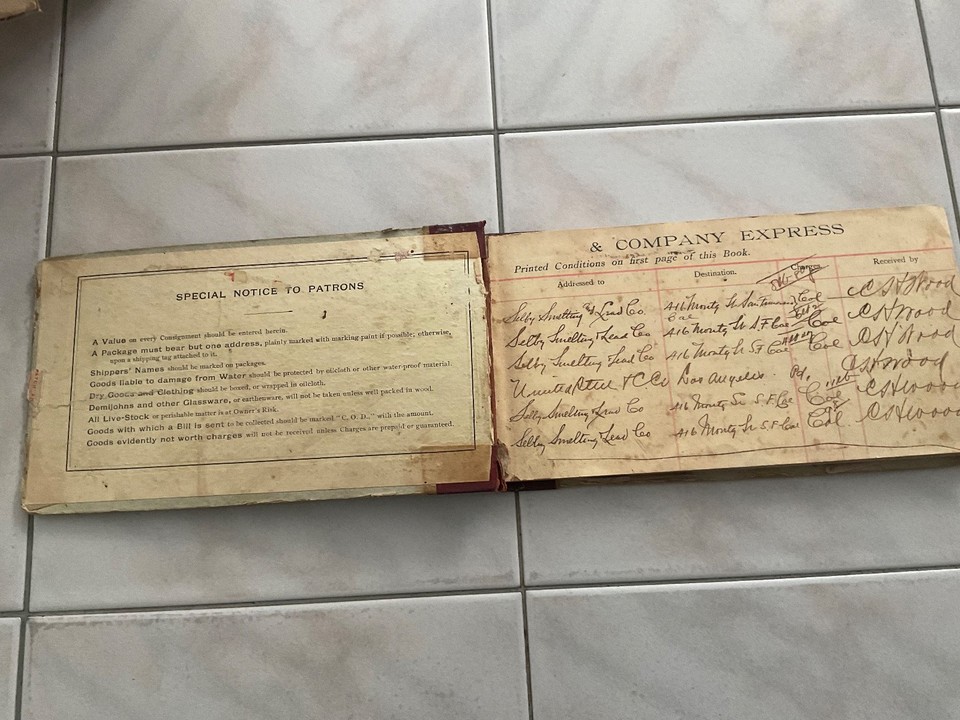 SPECIAL NOTICE TO PATRONS
A Value on every Consignment should be entered herein.
A Package must bear but one address, plainly marked with marking paint if possible; otherwise,
upon a shipping tag attached to it.
Shippers' Names should be marked on packages.
Goods liable to damage from Water should be protected by oilcloth or other water-proof material.
Dry Goods and Clothing should be boxed, or wrapped in oilcloth.
Demijohns and other Glassware, or earthenware, will not be taken unless well packed in wood.
All Live-Stock or perishable matter is at Owner's Risk.
Goods with which a Bill is sent to be collected should be marked "C. O. D.," with the amount.
Goods evidently not worth charges will not be received unless Charges are prepaid or guaranteed.
& COMPANY EXPRESS
Printed Conditions on first page of this Book.
Addressed to Destination. Charges Received by
Selby Smelting & Lead Co. 416 Montg St San Francisco Col C S H Wood
Cal
Selby Smelting & Lead Co 416 Montg St S F Cal Col C S H Wood
Selby Smelting & Lead Co 416 Montg St S F Cal Col C S H Wood
Los Angeles. Pd. C S H Wood
Selby Smelting & Lead Co 416 Montg St S F Cal Col C S H Wood
Selby Smelting & Lead Co 416 Montg St S F Cal Col C S H Wood